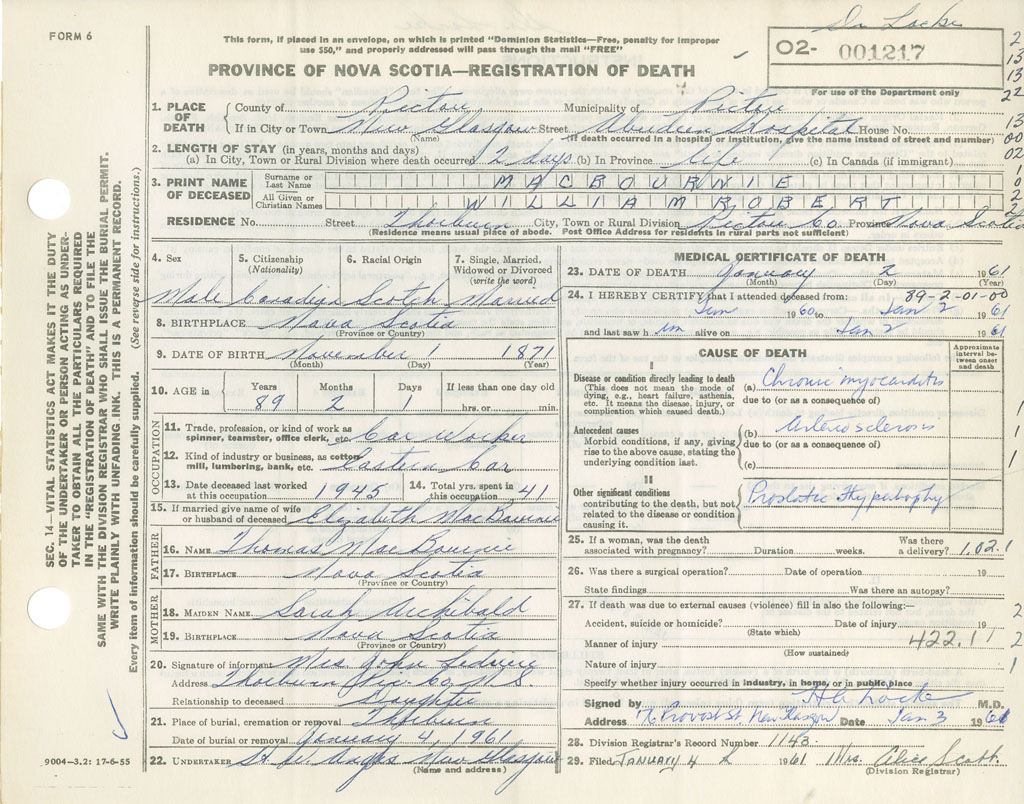 Dr Locke
FORM 6
This form, if placed in an envelope, on which is printed "Dominion Statistics—Free, penalty for improper
use $50," and properly addressed will pass through the mail "FREE"
O2- 001217
For use of the Department only
PROVINCE OF NOVA SCOTIA—REGISTRATION OF DEATH
1. PLACE OF DEATH County of Pictou Municipality of Pictou
If in City or Town New Glasgow Street Aberdeen Hospital House No.
(Name) (If death occurred in a hospital or institution, give the name instead of street and number)
2. LENGTH OF STAY (in years, months and days)
(a) In City, Town or Rural Division where death occurred 2 days (b) In Province life (c) In Canada (if immigrant)
3. PRINT NAME OF DECEASED Surname or Last Name MACBOURNIE
All Given or Christian Names WILLIAM ROBERT
RESIDENCE No. Street Thorburn City, Town or Rural Division Pictou Co. Province Nova Scotia
(Residence means usual place of abode. Post Office Address for residents in rural parts not sufficient)
4. Sex 5. Citizenship (Nationality) 6. Racial Origin 7. Single, Married, Widowed or Divorced (write the word)
Male Canadian Scotch Married
8. BIRTHPLACE Nova Scotia
(Province or Country)
9. DATE OF BIRTH November 1 1871
(Month) (Day) (Year)
10. AGE in Years Months Days If less than one day old
89 2 1 hrs. or min.
OCCUPATION
11. Trade, profession, or kind of work as spinner, teamster, office clerk, etc. Car Worker
12. Kind of industry or business, as cotton mill, lumbering, bank, etc. Eastern Car
13. Date deceased last worked at this occupation 1945 14. Total yrs. spent in this occupation 41
15. If married give name of wife or husband of deceased Elizabeth MacBournie
FATHER
16. NAME Thomas MacBournie
17. BIRTHPLACE Nova Scotia
(Province or Country)
MOTHER
18. MAIDEN NAME Sarah Archibald
19. BIRTHPLACE Nova Scotia
(Province or Country)
20. Signature of informant Mrs John
Address Thorburn Pic. Co N.S
Relationship to deceased Daughter
21. Place of burial, cremation or removal Thorburn
Date of burial or removal January 4, 1961
22. UNDERTAKER New Glasgow
(Name and address)
MEDICAL CERTIFICATE OF DEATH
23. DATE OF DEATH January 2 1961
(Month) (Day) (Year)
24. I HEREBY CERTIFY that I attended deceased from: 89-2-01-00
Jan 1960 to Jan 2 1961
and last saw h im alive on Jan 2 1961
CAUSE OF DEATH
Approximate interval between onset and death
I
Disease or condition directly leading to death (a) Chronic myocarditis
(This does not mean the mode of dying, e.g., heart failure, asthenia, etc. It means the disease, injury, or complication which caused death.)
due to (or as a consequence of)
Antecedent causes (b) Arteriosclerosis
Morbid conditions, if any, giving rise to the above cause, stating the underlying condition last.
due to (or as a consequence of)
(c)
II
Other significant conditions contributing to the death, but not related to the disease or condition causing it. Prostatic Hypertrophy
25. If a woman, was the death associated with pregnancy? Duration weeks. Was there a delivery? 1.02.1
26. Was there a surgical operation? Date of operation 19
State findings Was there an autopsy?
27. If death was due to external causes (violence) fill in also the following:—
Accident, suicide or homicide? Date of injury 19
(State which)
Manner of injury 422.1
(How sustained)
Nature of injury
Specify whether injury occurred in industry, in home, or in public place
Signed by H A Locke M.D.
Address Provost St New Glasgow Date Jan 3 1961
28. Division Registrar's Record Number 1143
29. Filed JANUARY 4 1961 Mrs. Alice Scott.
(Division Registrar)
SEC. 14—VITAL STATISTICS ACT MAKES IT THE DUTY
OF THE UNDERTAKER OR PERSON ACTING AS UNDER-
TAKER TO OBTAIN ALL THE PARTICULARS REQUIRED
IN THE "REGISTRATION OF DEATH" AND TO FILE THE
SAME WITH THE DIVISION REGISTRAR WHO SHALL ISSUE THE BURIAL PERMIT.
WRITE PLAINLY WITH UNFADING INK. THIS IS A PERMANENT RECORD.
Every item of information should be carefully supplied. (See reverse side for instructions.)
9004—3.2: 17-6-55